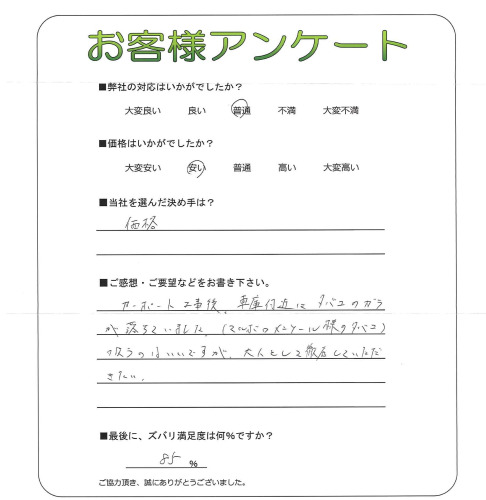 お客様アンケート
■弊社の対応はいかがでしたか？
大変良い　良い　普通　不満　大変不満
■価格はいかがでしたか？
大変安い　安い　普通　高い　大変高い
■当社を選んだ決め手は？
価格
■ご感想・ご要望などをお書き下さい。
カーポート工事後、車庫付近にタバコのガラ
が落ちていました。(マルボロメンソール様のタバコ)
吸うのはいいですが、大人として徹底していただ
きたい。
■最後に、ズバリ満足度は何％ですか？
85 ％
ご協力頂き、誠にありがとうございました。